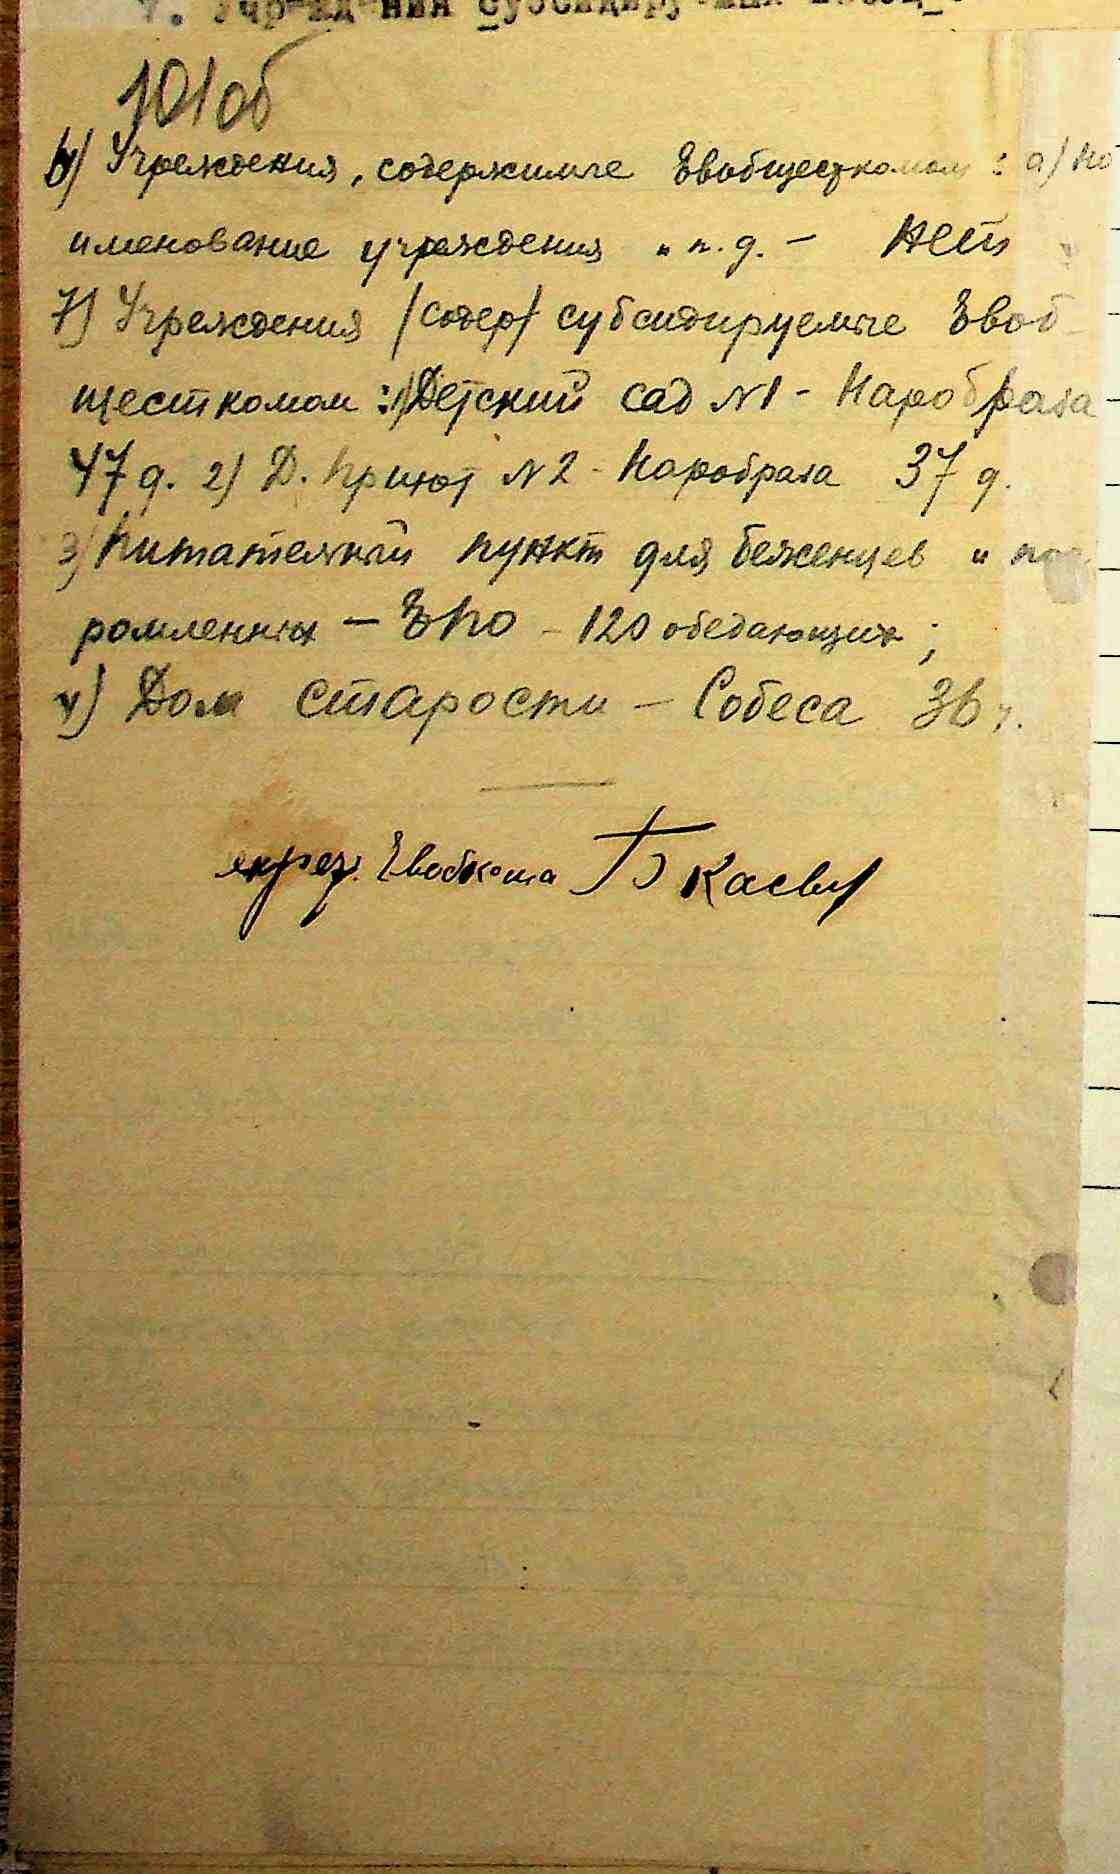 7. Учреждения субсидируемых
101об
6) Учреждения, содержимые Евобщесткомом: а) на
именование учреждения и т. д. – Нет
7) Учреждения /содер/ субсидируемые Евоб-
щесткомом: 1) Детский сад №1 - Наробраза -
47 д. 2) Д. Приют №2 - Наробраза 37 д.
3) Питательный пункт для беженцев и пог
ромленных – ЕПО - 120 обедающих;
4) Дом старости – Собеса 36 ч.
Евобкома